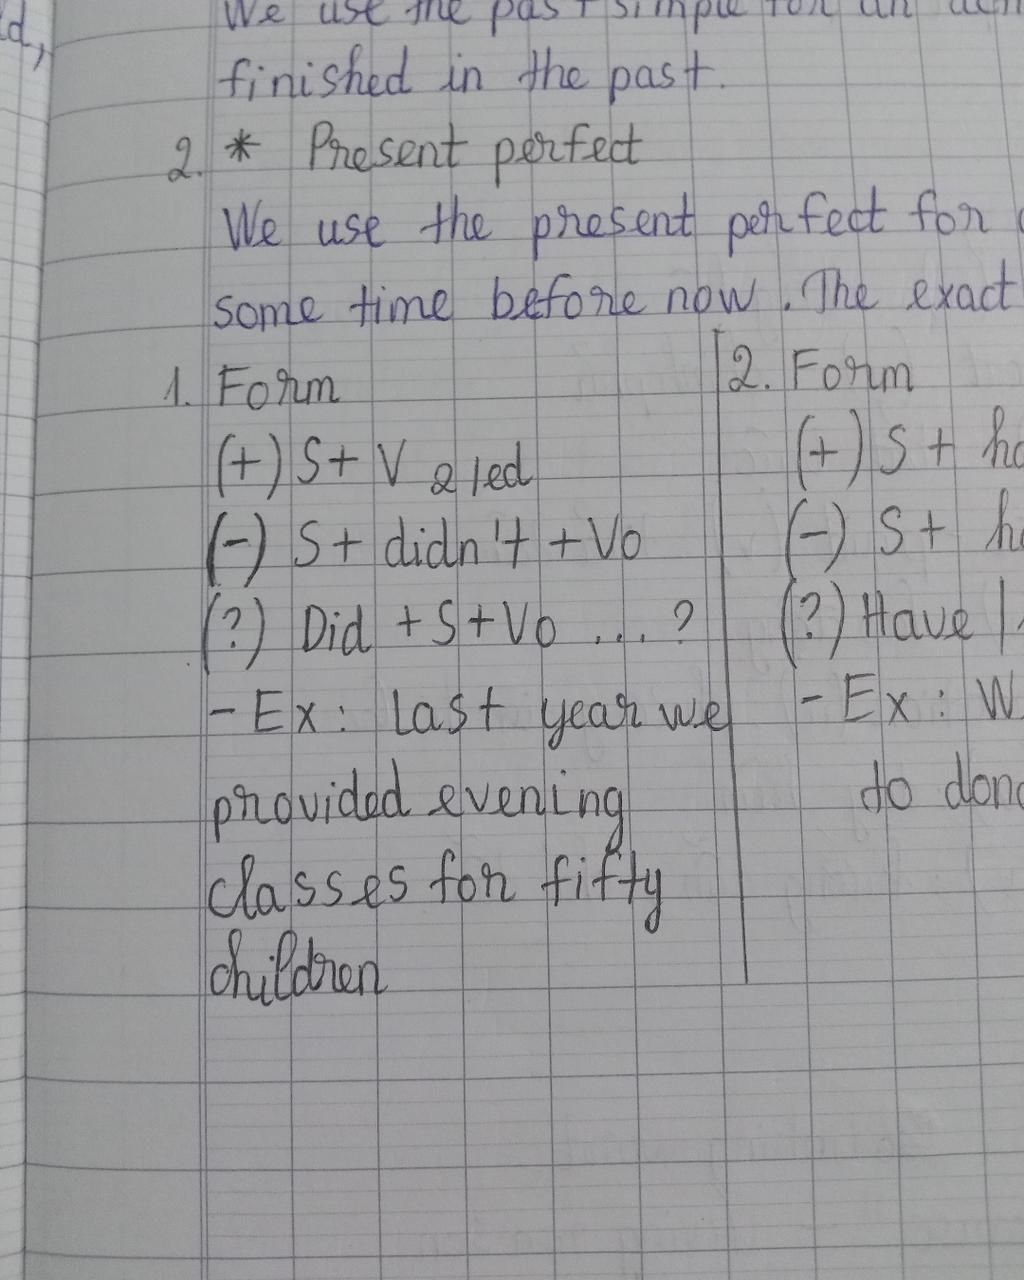 d,
We use the past simple for an
finished in the past.
2. * Present perfect
We use the present perfect for
some time before now. The exact
1. Form
(+) S + V 2/ed
(-) S + didn't + Vo
(?) Did + S + Vo ... ?
- Ex: Last year we
provided evening
classes for fifty
children
2. Form
(+) S + ha
(-) S + ha
(?) Have /
- Ex: W
to dona